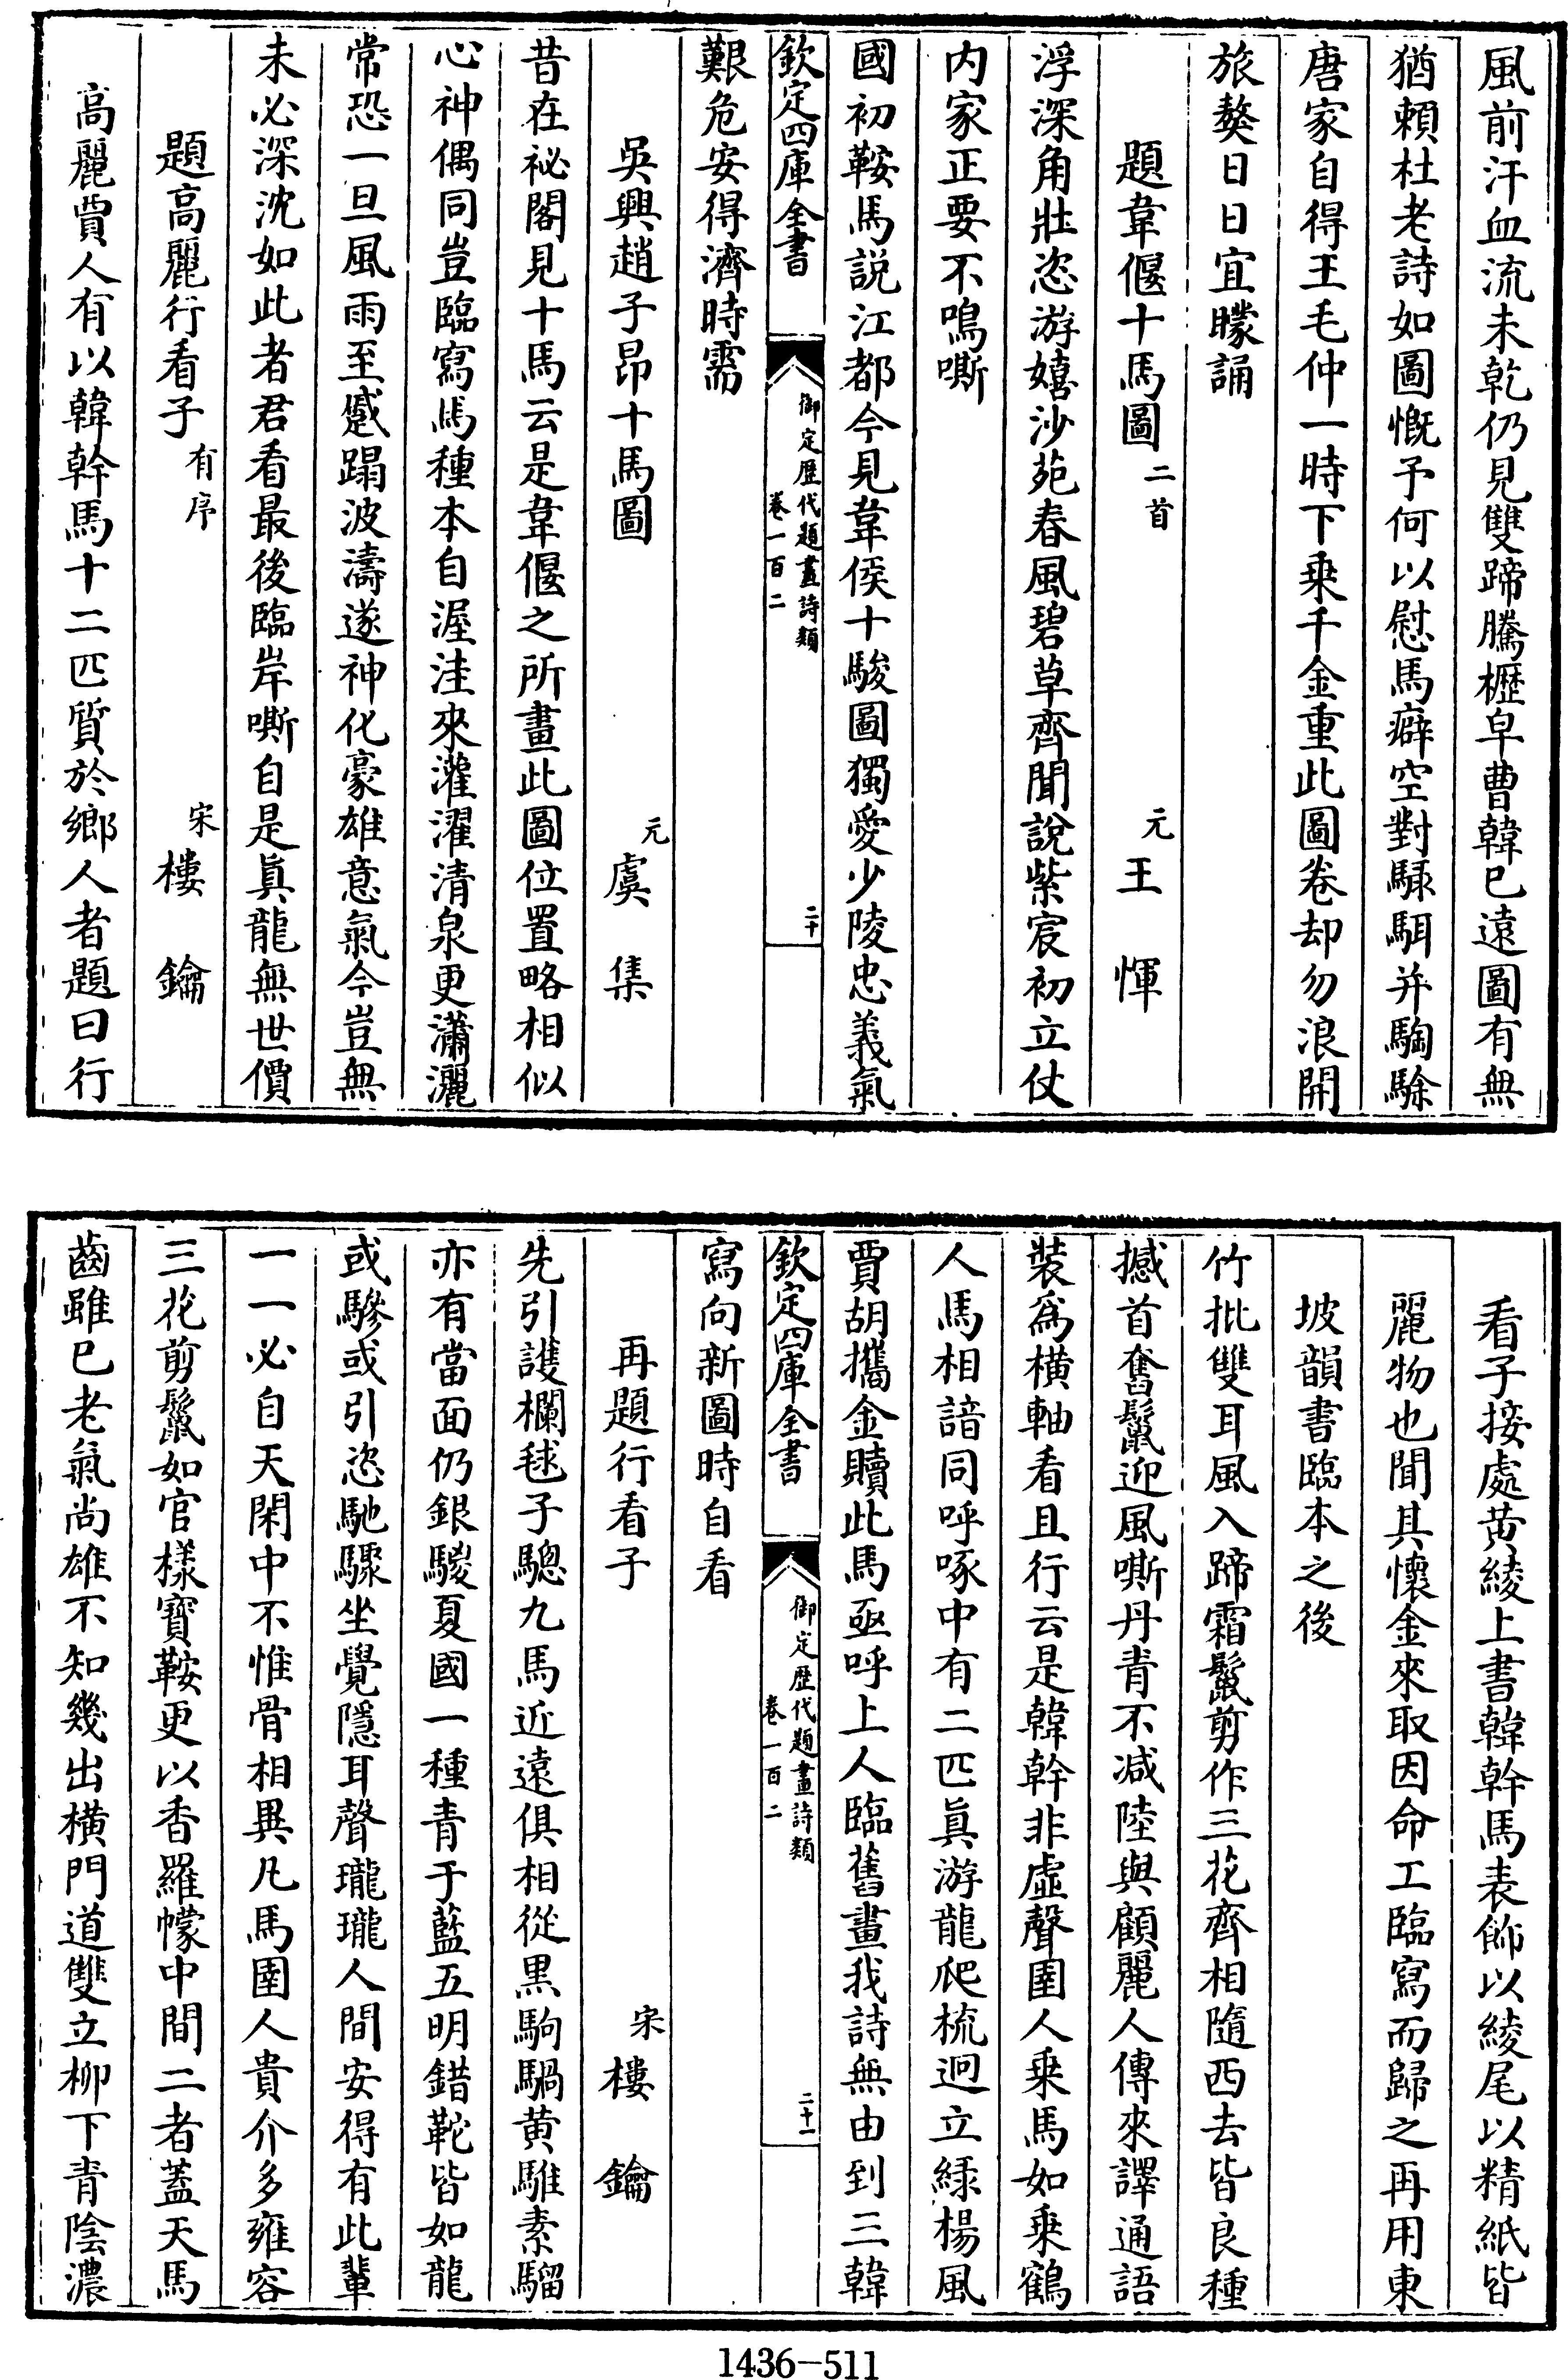 風前汗血流未乾仍見雙蹄騰櫪皁曹韓已遠圖有無
猶賴杜老詩如圖慨予何以慰馬癖空對騄駬并騊駼
唐家自得王毛仲一時下乗千金重此圖卷却勿浪開
旅獒日日宜矇誦
題韋偃十馬圖二首 元王惲
浮深角壯恣游嬉沙苑春風碧草齊聞說紫宸初立仗
内家正要不鳴嘶
國初鞍馬説江都今見韋侯十駿圖獨愛少陵忠義氣
欽定四庫全書 御定歴代題畫詩類 卷一百二 二十
艱危安得濟時需
吳興趙子昂十馬圖 元虞集
昔在祕閣見十馬云是韋偃之所畫此圖位置略相似
心神偶同豈臨寫馬種本自渥洼來灌濯清泉更瀟灑
常恐一旦風雨至蹙蹋波濤遂神化豪雄意氣今豈無
未必深沈如此者君看最後臨岸嘶自是真龍無世價
題高麗行看子有序 宋樓鑰
高麗賈人有以韓幹馬十二匹質於鄉人者題曰行
看子接處黄綾上書韓幹馬表飾以綾尾以精紙皆
麗物也聞其懷金來取因命工臨寫而歸之再用東
坡韻書臨本之後
竹批雙耳風入蹄霜鬣剪作三花齊相隨西去皆良種
撼首奮鬣迎風嘶丹青不减陸與顧麗人傳來譯通語
裝為横軸看且行云是韓幹非虚聲圉人乗馬如乗鶴
人馬相諳同呼啄中有二匹真游龍爬梳迥立緑楊風
賈胡攜金贖此馬亟呼上人臨舊畫我詩無由到三韓
欽定四庫全書 御定歴代題畫詩類 卷一百二 二十一
寫向新圖時自看
再題行看子 宋樓鑰
先引護欄毬子驄九馬近遠俱相從黒駒騧黄騅素騮
亦有當面仍銀騣夏國一種青于藍五明錯鞁皆如龍
或驂或引恣馳驟坐覺隱耳聲瓏瓏人間安得有此輩
一一必自天閑中不惟骨相異凡馬圉人貴介多雍容
三花剪鬣如官様寳鞍更以香羅幪中間二者蓋天馬
齒雖已老氣尚雄不知幾出横門道雙立柳下青陰濃
1436-511